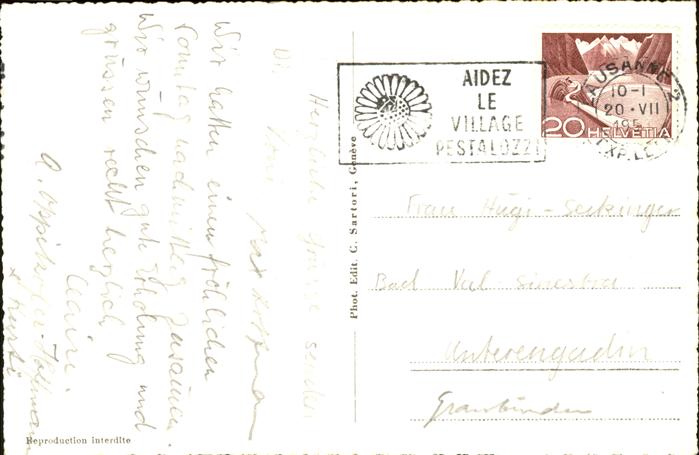 Herzliche Grüsse senden
Dir
Wir hatten einen fröhlichen
Sonntag nachmittag zusammen.
Wir wünschen gute Erholung und
grüssen recht herzlich
Claire.
AIDEZ
LE
VILLAGE
PESTALOZZI
LAUSANNE 2
10-1
20·VII
195
EXP. LE
20 HELVETIA
Phot. Edit. C. Sartori, Genève
Frau Hügi-Seckinger
Bad Val Sinestra
Unterengadin
Graubünden
Reproduction interdite